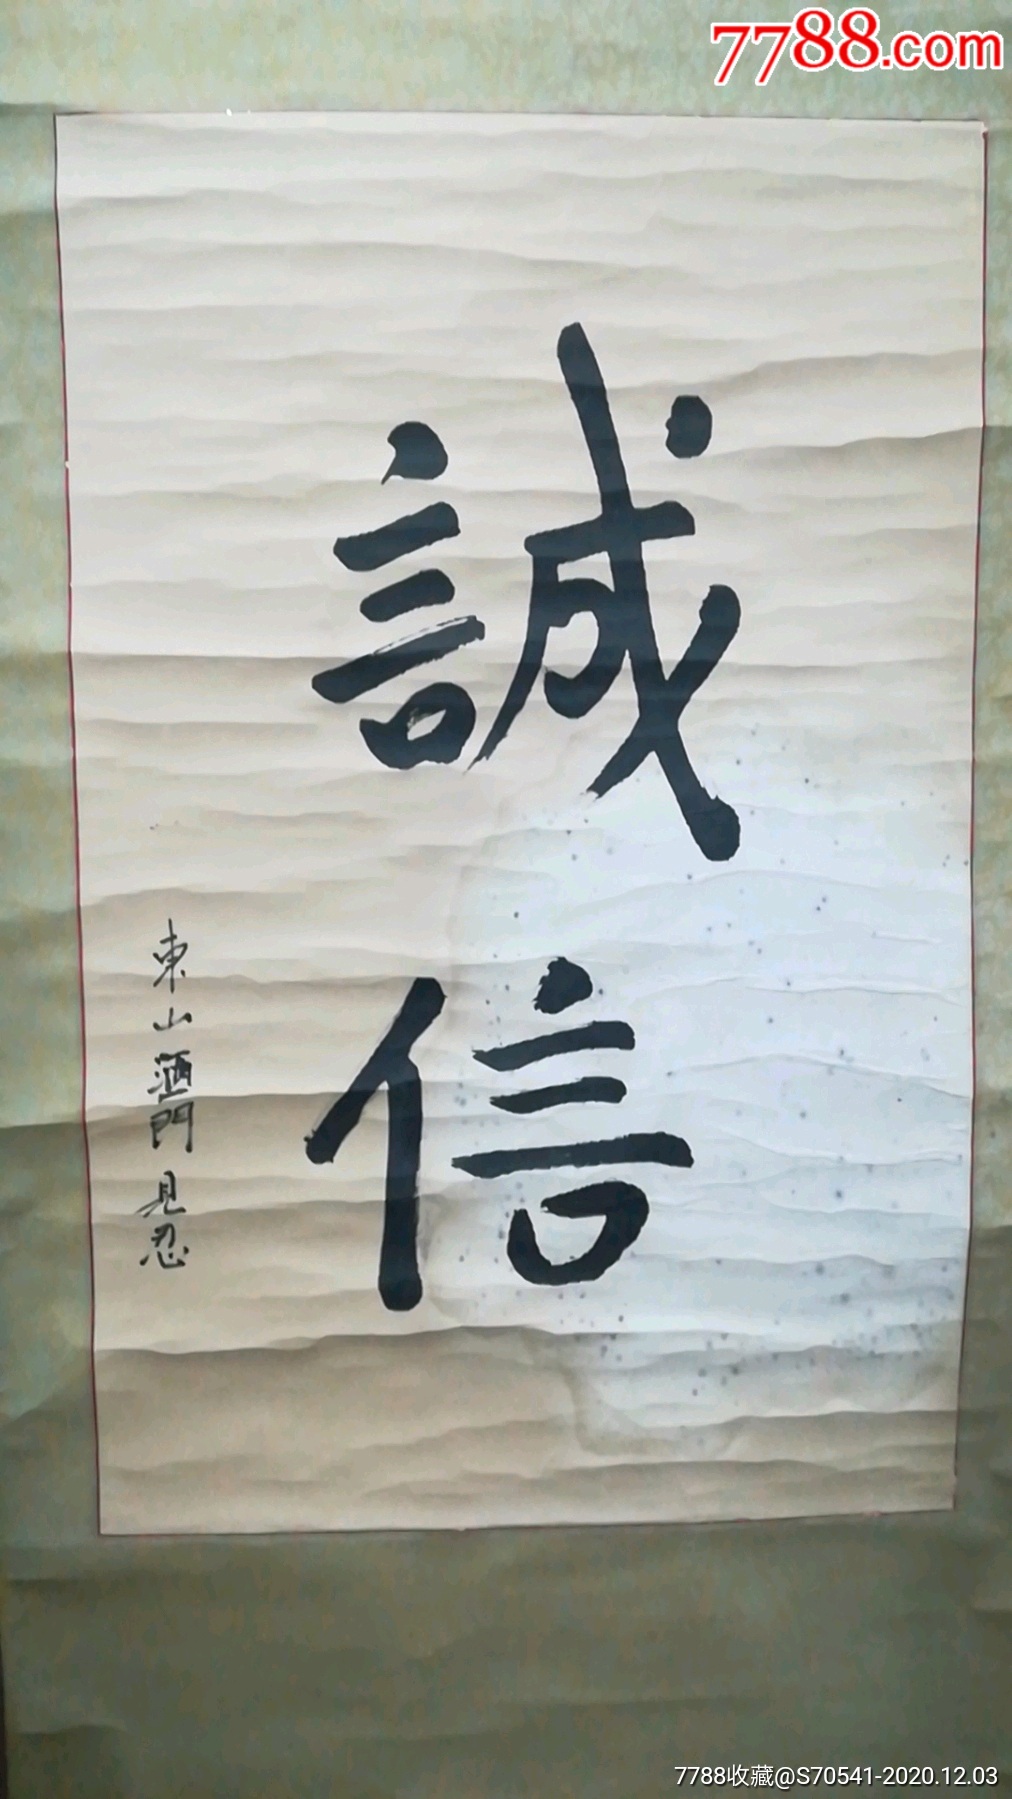 7788.com
誠
信
東山酒門見忍
7788收藏@S70541-2020.12.03